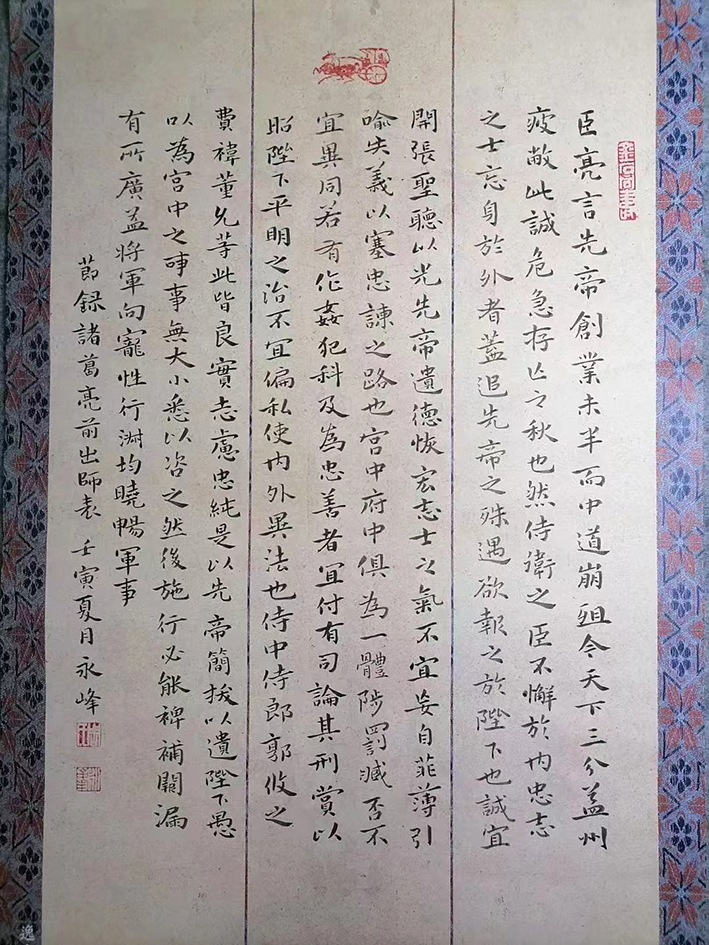 臣亮言先帝創業未半而中道崩殂今天下三分益州
疲敝此誠危急存亡之秋也然侍衛之臣不懈於內忠志
之士忘身於外者蓋追先帝之殊遇欲報之於陛下也誠宜
開張聖聽以光先帝遺德恢宏志士之氣不宜妄自菲薄引
喻失義以塞忠諫之路也宮中府中俱為一體陟罰臧否不
宜異同若有作姦犯科及為忠善者宜付有司論其刑賞以
昭陛下平明之治不宜偏私使內外異法也侍中侍郎郭攸之
費禕董允等此皆良實志慮忠純是以先帝簡拔以遺陛下愚
以為宮中之事事無大小悉以咨之然後施行必能裨補闕漏
有所廣益將軍向寵性行淑均曉暢軍事
節錄諸葛亮前出師表 壬寅夏月 永峰
逸